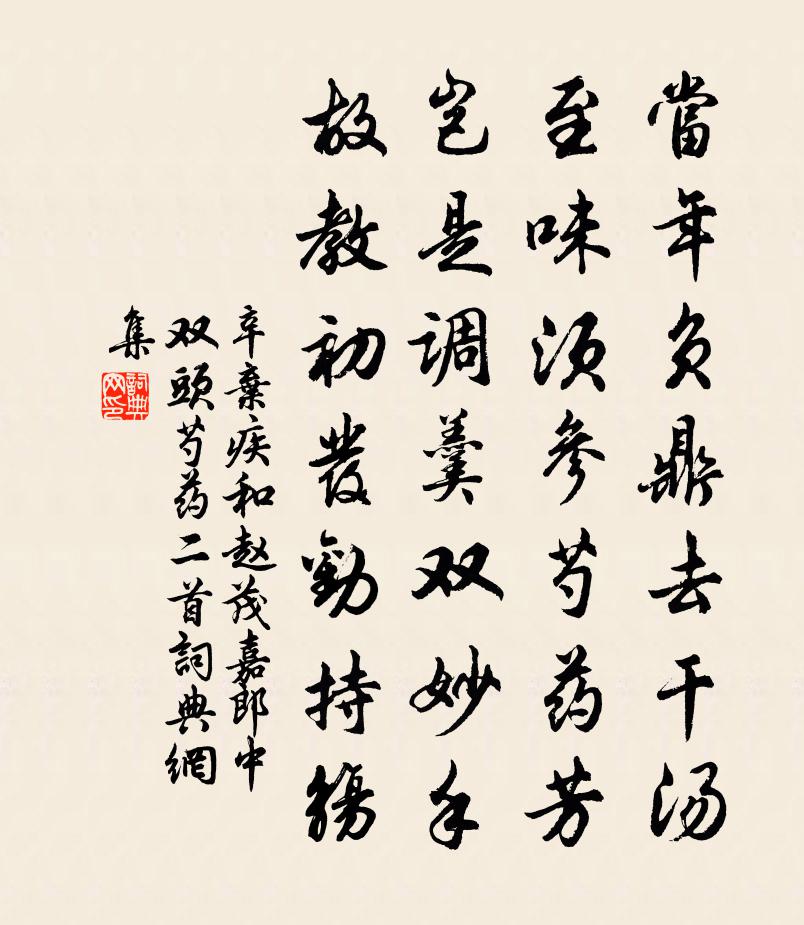 當年負鼎去干汤
至味須參芍药芳
岂是调羹双妙手
故教初發勸持觴
辛棄疾和赵茂嘉郎中
双頭芍药二首詞典網
集
詞典网印